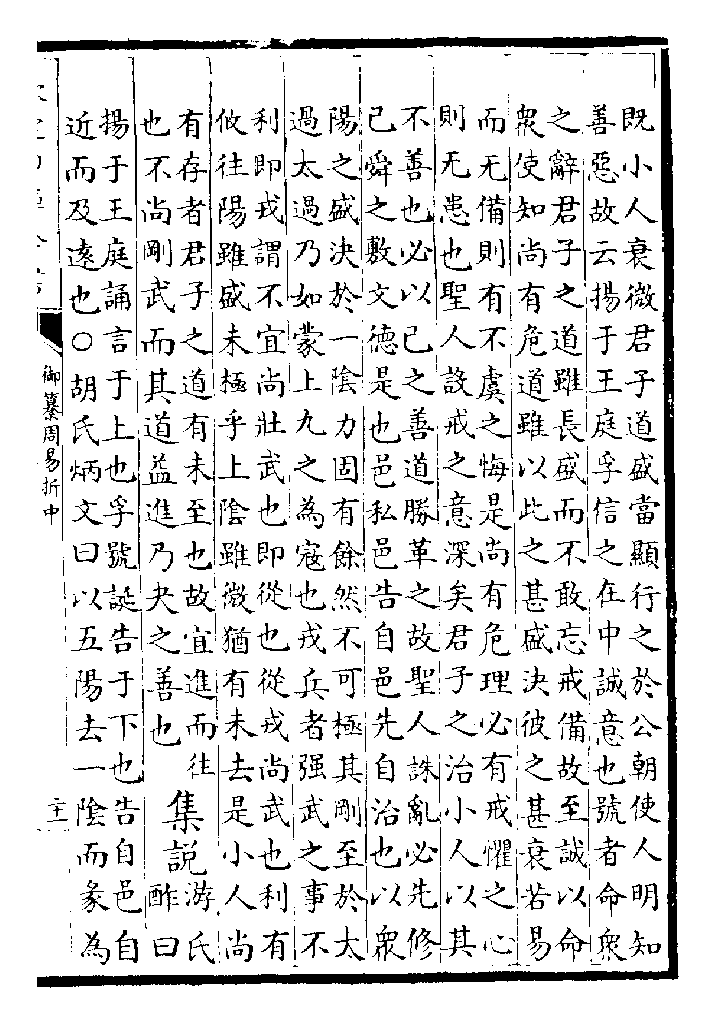 既小人衰微君子道盛當顯行之於公朝使人明知
善惡故云揚于王庭孚信之在中誠意也號者命衆
之辭君子之道雖長盛而不敢忘戒備故至誠以命
衆使知尚有危道雖以此之甚盛決彼之甚衰若易
而无備則有不虞之悔是尚有危理必有戒懼之心
則无患也聖人設戒之意深矣君子之治小人以其
不善也必以己之善道勝革之故聖人誅亂必先修
己舜之敷文德是也邑私邑告自邑先自治也以衆
陽之盛決於一陰力固有餘然不可極其剛至於太
過太過乃如蒙上九之為寇也戎兵者强武之事不
利即戎謂不宜尚壯武也即從也從戎尚武也利有
攸往陽雖盛未極乎上陰雖微猶有未去是小人尚
有存者君子之道有未至也故宜進而往
也不尚剛武而其道益進乃夬之善也
集說
游氏
酢曰
揚于王庭誦言于上也孚號誕告于下也告自邑自
近而及遠也○胡氏炳文曰以五陽去一陰而彖為
御纂周易折中